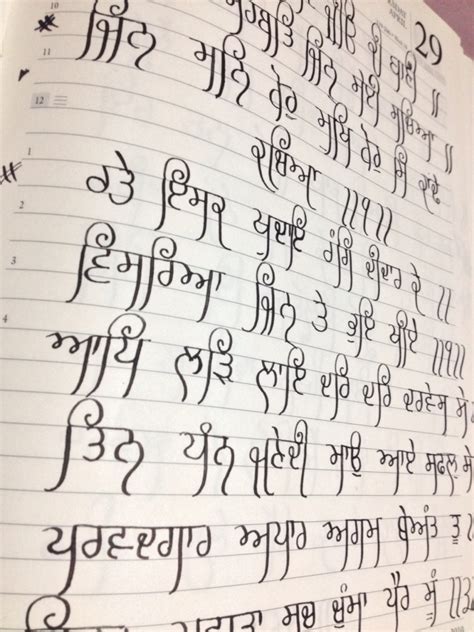 29
10
ਮੁਹਬਤਿ ਜਿੰਨ ਸੇਈ ਸਚਿਆ ॥
11
ਜਿੰਨ ਮਨਿ ਹੋਰੁ ਮੁਖਿ ਹੋਰੁ ਸਿ ਕਾਢੇ
12
ਕਚਿਆ ॥੧॥
1
ਰਤੇ ਇਸਕ ਖੁਦਾਇ ਰੰਗਿ ਦੀਦਾਰ ਕੇ ॥
2
ਵਿਸਰਿਆ ਜਿੰਨ ਤੇ ਭੁਇ ਥੀਏ ॥੧॥
3
ਆਪਿ ਲੜਿ ਲਾਇ ਦਰਿ ਦਰਿ ਦਰਵੇਸ ਸੇ
4
ਤਿੰਨ ਧੰਨ ਜਣੇਦੀ ਮਾਉ ਆਏ ਸਫਲੁ ਸੇ
ਪਰਵਦਗਾਰ ਅਪਾਰ ਅਗਮ ਬੇਅੰਤ ਤੂ
ਪਛਾਤਾ ਸਚ ਚੁੰਮਾ ਪੈਰ ਮੂੰ ॥੩